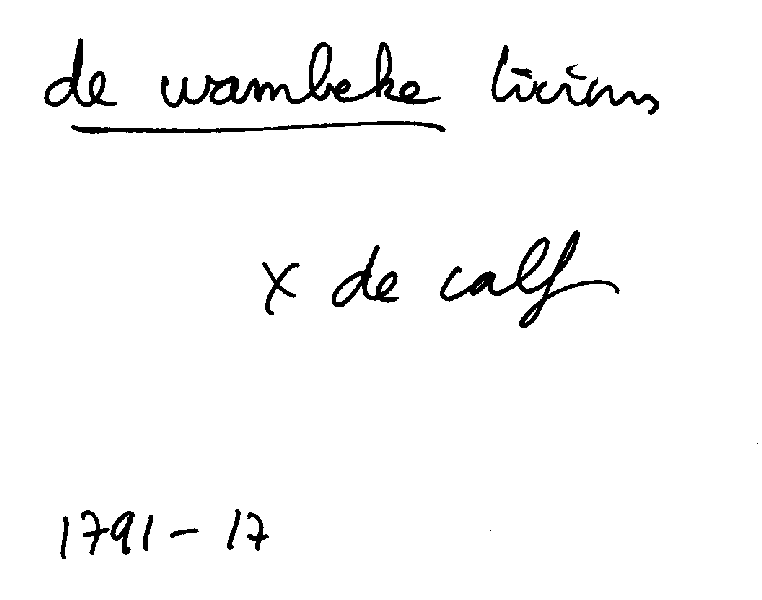 de wambeke livinus
x de calf
1791 - 17